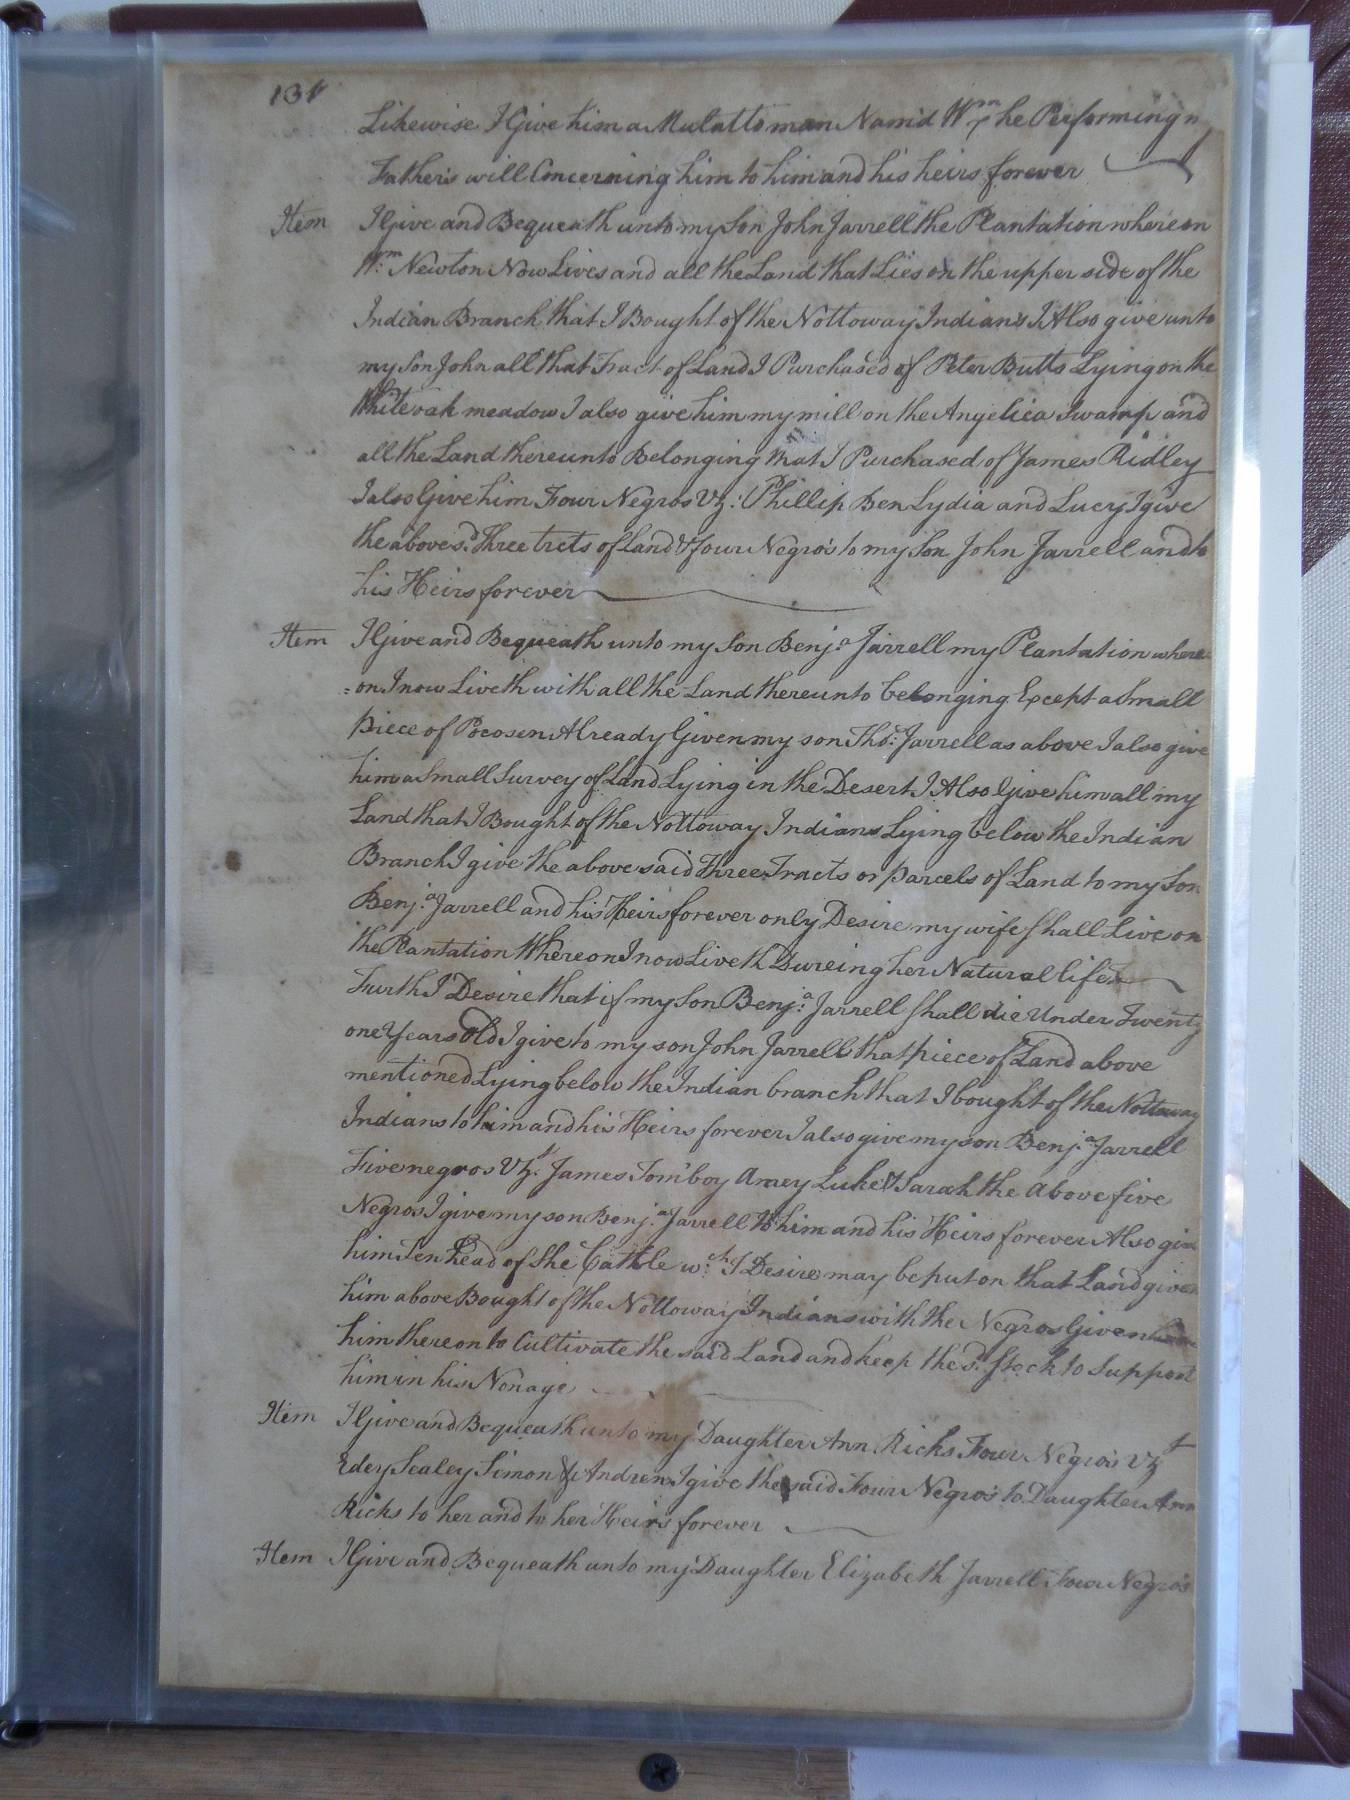 131
Likewise I Give him a Mulatto man Nam'd Wm he Performing
Father's will Concerning him to him and his heirs forever
Item I Give and Bequeath unto my Son John Jarrell the Plantation whereon
Wm Newton Now Lives and all the Land that Lies on the upper side of the
Indian Branch that I Bought of the Nottoway Indians I Also give unto
my Son John all that Tract of Land I Purchased of Peter Butts Lying on the
White oak meadow I also give him my mill on the Angelica Swamp and
all the Land thereunto Belonging that I Purchased of James Ridley
I also Give him Four Negros Vz: Phillip Ben Lydia and Lucy I give
the above sd. Three trcts of land & four Negro's to my Son John Jarrell and to
his Heirs forever
Item I Give and Bequeath unto my Son Benja. Jarrell my Plantation where=
=on I now Liveth with all the Land thereunto belonging Except a Small
piece of Pocosen Already Given my son Tho.s Jarrell as above I also give
him a Small Survey of Land Lying in the Desert I Also Give him all my
Land that I Bought of the Nottoway Indians Lying below the Indian
Branch I give the above said Three Tracts or parcels of Land to my Son
Benja. Jarrell and his Heirs forever only Desire my wife shall Live on
the Plantation Whereon I now Liveth Dureing her Natural life
Furth I Desire that if my Son Benja. Jarrell shall die Under Twenty
one Years old I give to my son John Jarrell that piece of Land above
mentioned Lying below the Indian branch that I bought of the Nottoway
Indians to him and his Heirs forever I also give my son Benja. Jarrell
Five negros Vzt. James Tom boy Amey Luke & Sarah the Above five
Negros I give my son Benja. Jarrell to him and his Heirs forever Also give
him Ten head of She Cattle wch. I Desire may be put on that Land given
him above Bought of the Nottoway Indians with the Negros Given
him thereon to Cultivate the said Land and keep the sd. stock to Support
him in his Nonage
Item I Give and Bequeath unto my Daughter Ann Ricks Four Negro's Vzt
Edey Sealey Simon & Andrew I give the said Four Negro's to Daughter Ann
Ricks to her and to her Heirs forever
Item I Give and Bequeath unto my Daughter Elizabeth Jarrell Four Negro's